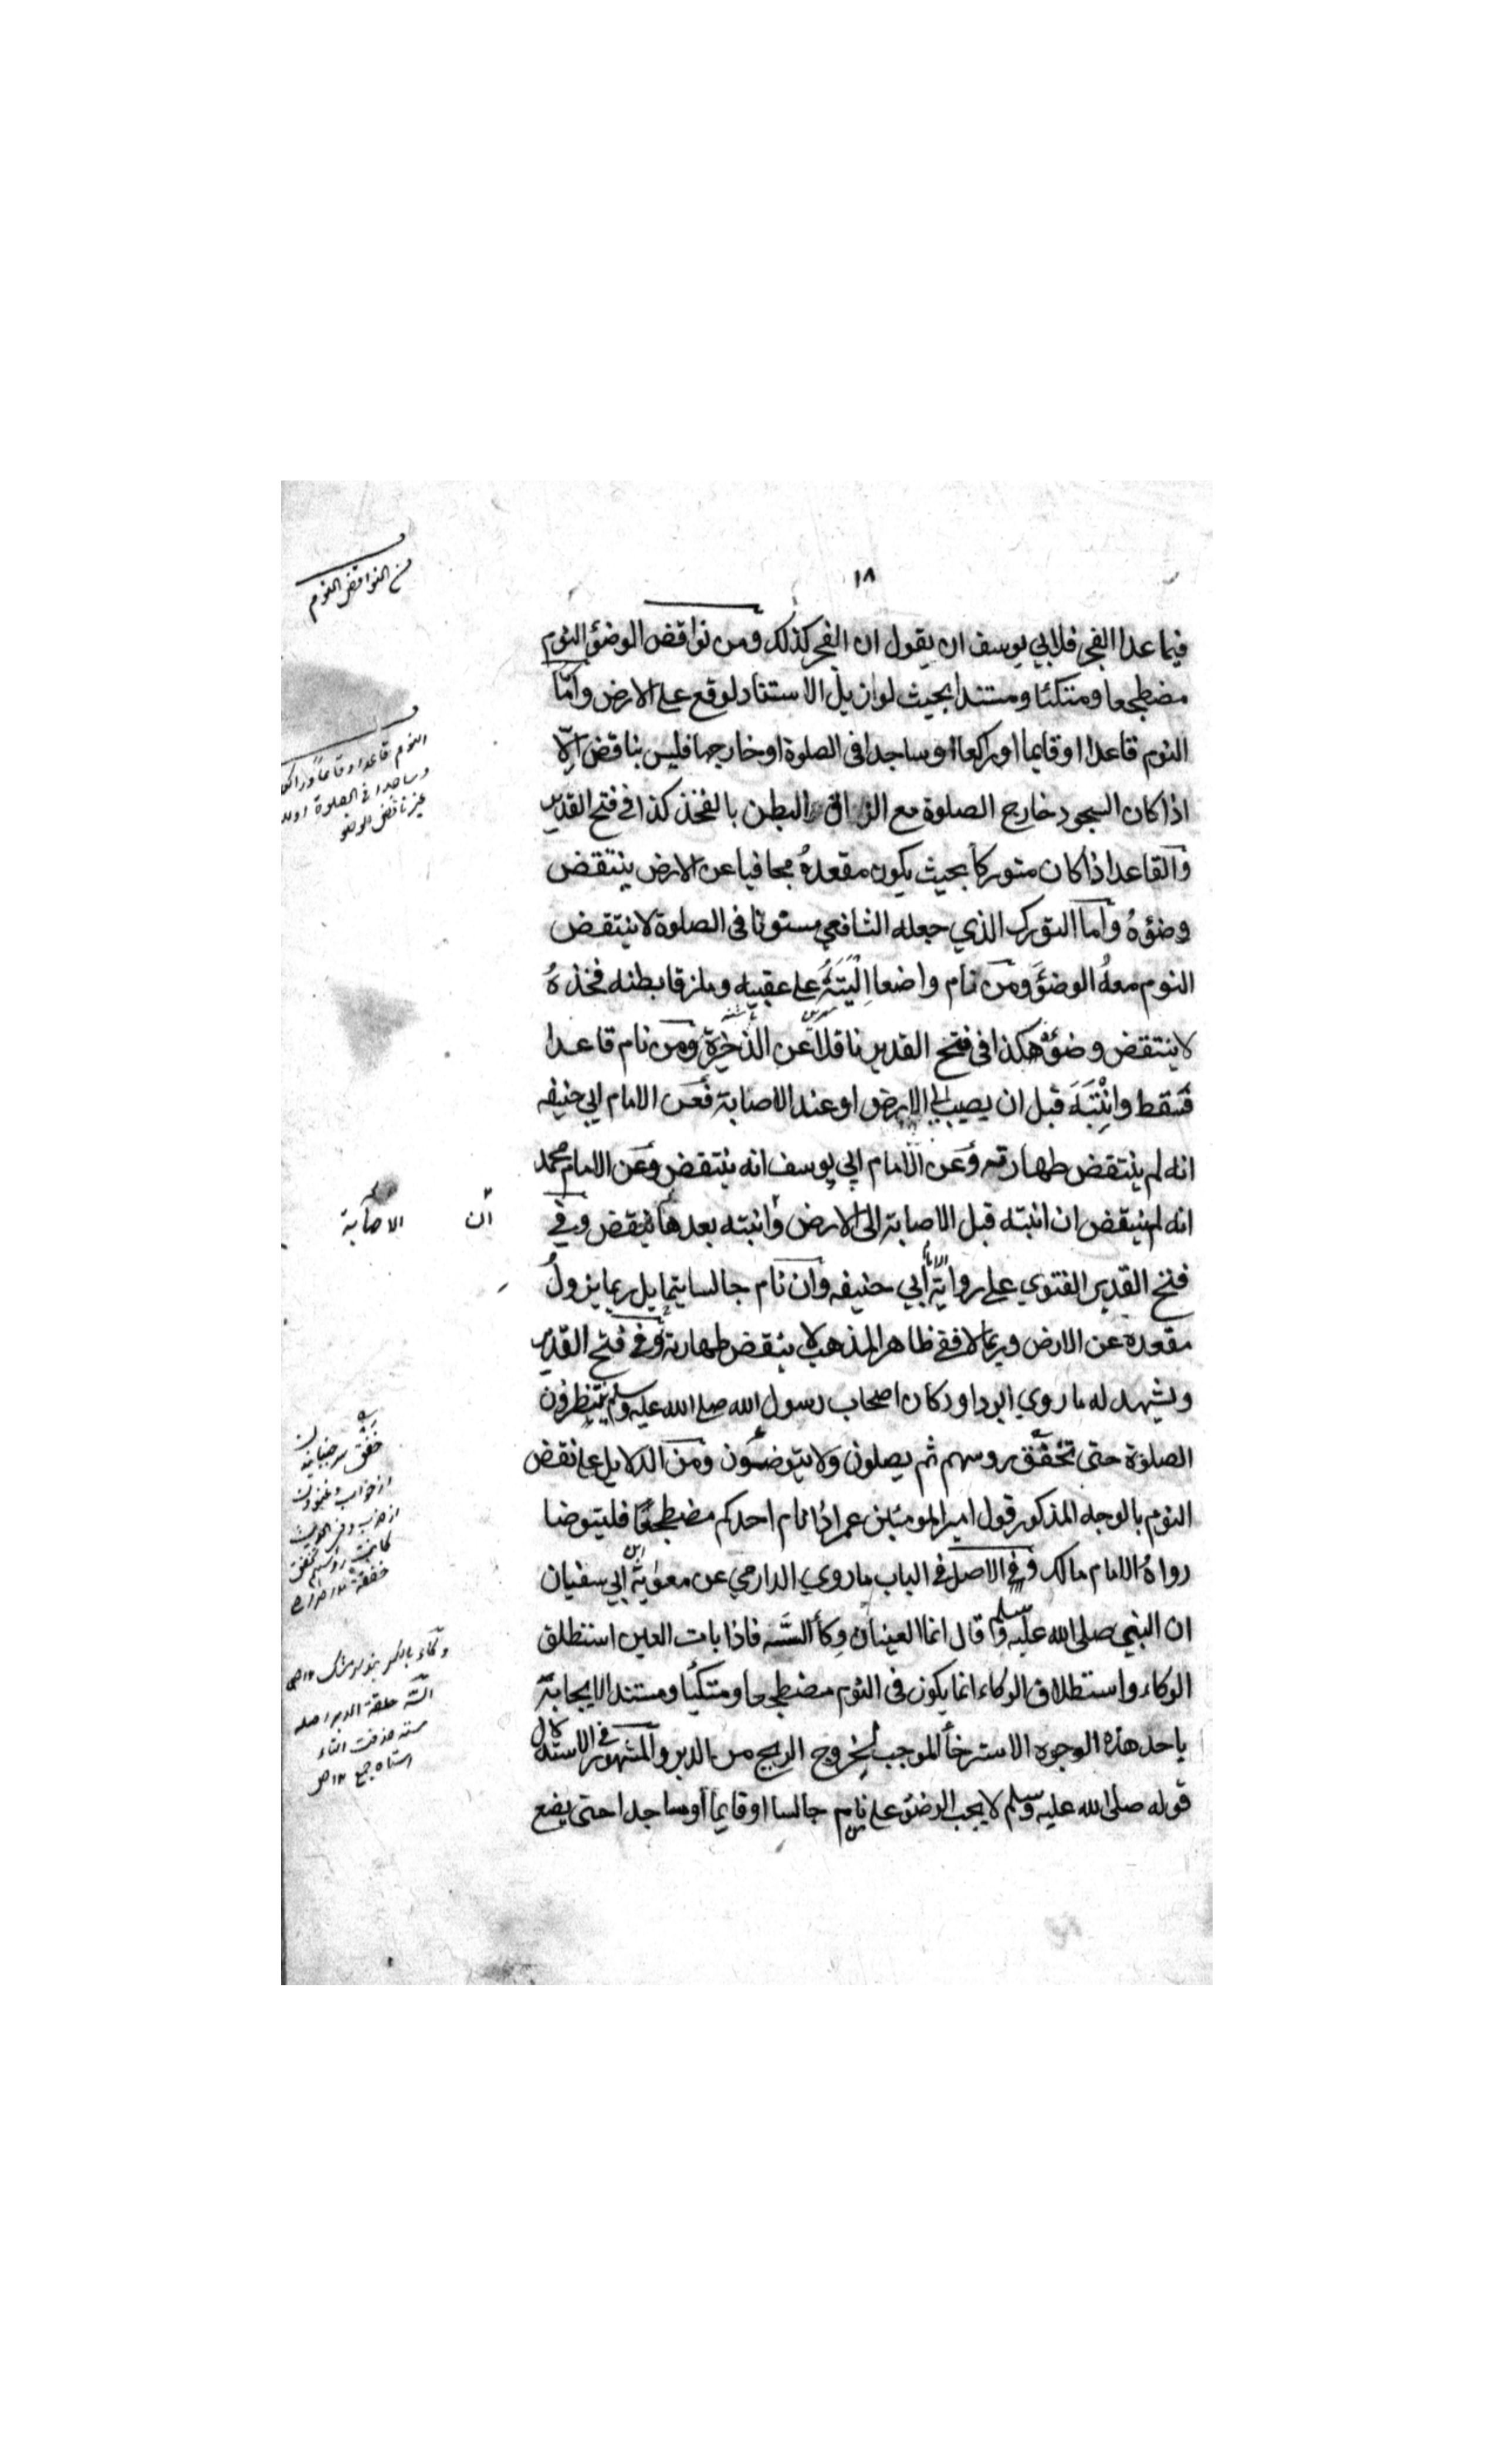 ١٨
فيما عدا الفجر فلابي يوسف ان يقول ان الفجر كذلك ومن نواقض الوضؤ النوم
مضطجعا ومتكئا ومستندا بحيث لو ازيل الاستناد لوقع على الارض واما
النوم قاعدا او قايما او راكعا او ساجدا فى الصلوة او خارجها فليس بناقض الّا
اذا كان السجود خارج الصلوة مع الزاق البطن بالفخذ كذا في فتح القدير
والقاعد اذا كان متوركا بحيث يكون مقعدهُ مجافيا عن الارض ينتقض
وضؤهُ واما التورك الذي جعله الشافعي مسنونا فى الصلوة لا ينتقض
النوم معهُ الوضؤَ ومن نام واضعا اِلْيَتَيْهُ على عقبيه وملزقا بطنه فخذهُ
لا ينتقض وضؤه هكذا فى فتح القدير ناقلا عن الذخيرة ومن نام قاعدا
فسقط وانْتَبَهَ قبل ان يصيب الى الارض او عند الاصابة فعن الامام ابي حنيفه
انه لم ينتقض طهارته وعن الامام ابي يوسف انه ينتقض وعن الامام محمد
انه لم ينتقض ان انتبه قبل الاصابة الى الارض وانتبه بعدها ينقض وفي
فتح القدير الفتوي على رواية الامام أبي حنيفه وان نام جالسا يتمايل ربما يزولُ
مقعده عن الارض وربما لا ففي ظاهر المذهب لا ينقض طهارته وفي فتح القدير
ويشهد له ما روي ابو داود كان اصحاب رسول الله صلى الله عليه وسلم ينتظرون
الصلوة حتى تخفق روسهم ثم يصلون ولا يتوضئون ومن الدلايل على نقض
النوم بالوجه المذكور قول امير المومنين عمر اذا نام احدكم مضطجعا فليتوضا
رواهُ الامام مالك وفي الاصل في الباب ما روي الدارمي عن معوية ابن ابي سفيان
ان النبي صلى الله عليه وسلم قال انما العينان وكأ السَّه فاذا بات العين استطلق
الوكاء واستطلاق الوكاء انما يكون فى النوم مضطجعا ومتكيا ومستندا لايجابة
باحد هذه الوجوه الاسترخأ الموجب لخروج الريح من الدبر والمشهور في الاستدلال
قوله صلى الله عليه وسلم لا يجب الوضؤ على من نام جالسا او قايما او ساجدا حتى يضع
من النواقض النوم
النوم قاعدا وقايما وراكعا
وساجدا في الصلوة او
غير ناقض للوضو
ان
الاصابة
خفق سر جنبانيدن
وكاء بالكسر بند سر مشك ١٢ ص
السّه حلقة الدبر اصله
سته حذفت التاء
استاه جمع ١٢ ص